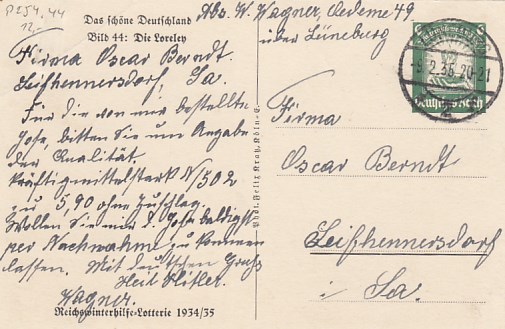 P254,44
12,-
Das schöne Deutschland
Bild 44: Die Loreley
Abs. W. Wagner, Oedeme 49
über Lüneburg
6
Deutsches Reich
-9.2.36.20-21
Firma Oscar Berndt.
Leißhennersdorf, Sa.
Für die von mir bestellte
Hose, bitten Sie um Angabe
der Qualität.
kräftig mittelstark N/502
zu 5,90 ohne Zuschlag.
Wollen Sie mir d. Hose baldigst
per Nachnahme zu kommen
lassen. Mit deutschem Gruß
Heil Hitler.
Wagner.
Reichswinterhilfe-Lotterie 1934/35
Phot. Felix Kray, Köln
Firma
Oscar Berndt
Leißhennersdorf
i Sa.